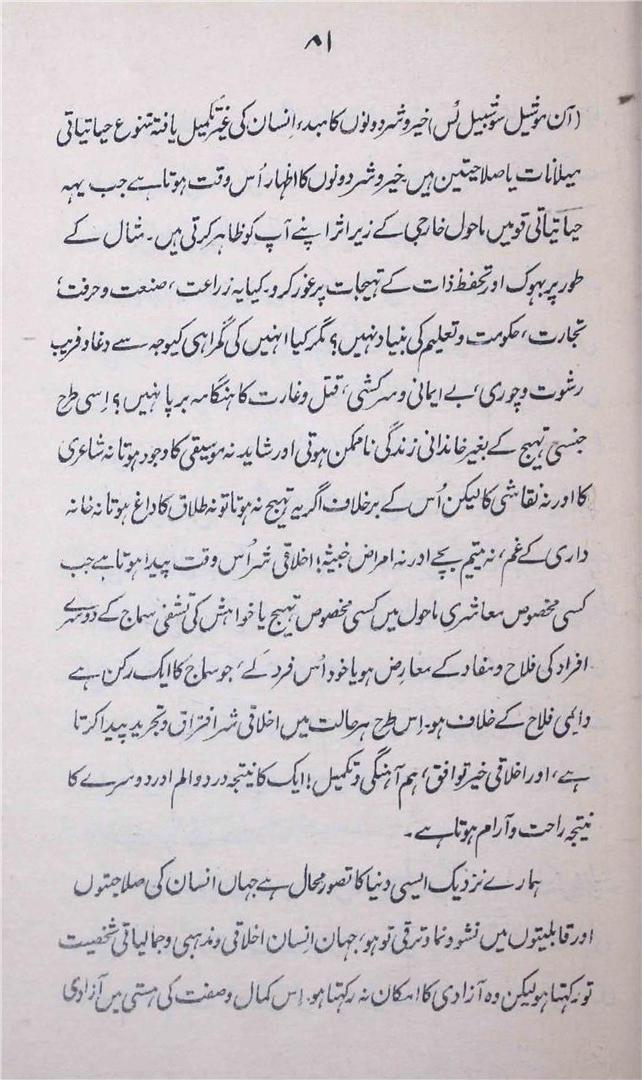 ۸۱
(آن سوشیل سوشیبیل نُس) خیر و شر دونوں کا مبدء انسان کی غیر تکمیل یافتہ متنوع حیاتیاتی
میلانات یا صلاحیتیں ہیں۔ خیر و شر دونوں کا اظہار اُس وقت ہوتا ہے جب یہہ
حیاتیاتی قومیں ماحول خارجی کے زیر اثر اپنے آپ کو ظاہر کرتی ہیں۔ مثال کے
طور پر بہوک اور تحفظ ذات کے تہیجات پر غور کرو۔ کیا یہ زراعت، صنعت و حرفت،
تجارت، حکومت و تعلیم کی بنیاد نہیں؟ مگر کیا انہیں کی گمراہی کیوجہ سے دغا و فریب
رشوت و چوری، بے ایمانی و سرکشی، قتل و غارت کا ہنگامہ برپا نہیں؟ اِسی طرح
جنسی تہیج کے بغیر خاندانی زندگی ناممکن ہوتی اور شاید نہ موسیقی کا وجود ہوتا نہ شاعری
کا اور نہ نقاشی کا لیکن اُس کے برخلاف اگر یہ تہیج نہ ہوتا تو نہ طلاق کا داغ ہوتا نہ خانہ
داری کے غم، نہ یتیم بچے اور نہ امراض خبیثہ! اخلاقی شر اُس وقت پیدا ہوتا ہے جب
کسی مخصوص معاشری ماحول میں کسی مخصوص تہیج یا خواہش کی تشفی سماج کے دوسرے
افراد کی فلاح و مفاد کے معارِض ہو یا خود اُس فرد کے، جو سماج کا ایک رکن ہے
دائمی فلاح کے خلاف ہو۔ اِس طرح ہر حالت میں اخلاقی شر افتراق و تجرید پیدا کرتا
ہے، اور اخلاقی خیر توافق، ہم آہنگی و تکمیل! ایک کا نتیجہ درد و الم اور دوسرے کا
نتیجہ راحت و آرام ہوتا ہے۔
ہمارے نزدیک ایسی دنیا کا تصور محال ہے جہاں انسان کی صلاحتوں
اور قابلیتوں میں نشو و نما و ترقی تو ہو، جہان انسان اخلاقی و مذہبی و جمالیاتی شخصیت
تو رکہتا ہو لیکن وہ آزادی کا امکان نہ رکہتا ہو۔ اِس کمال و صفت کی ہستی میں آزادی